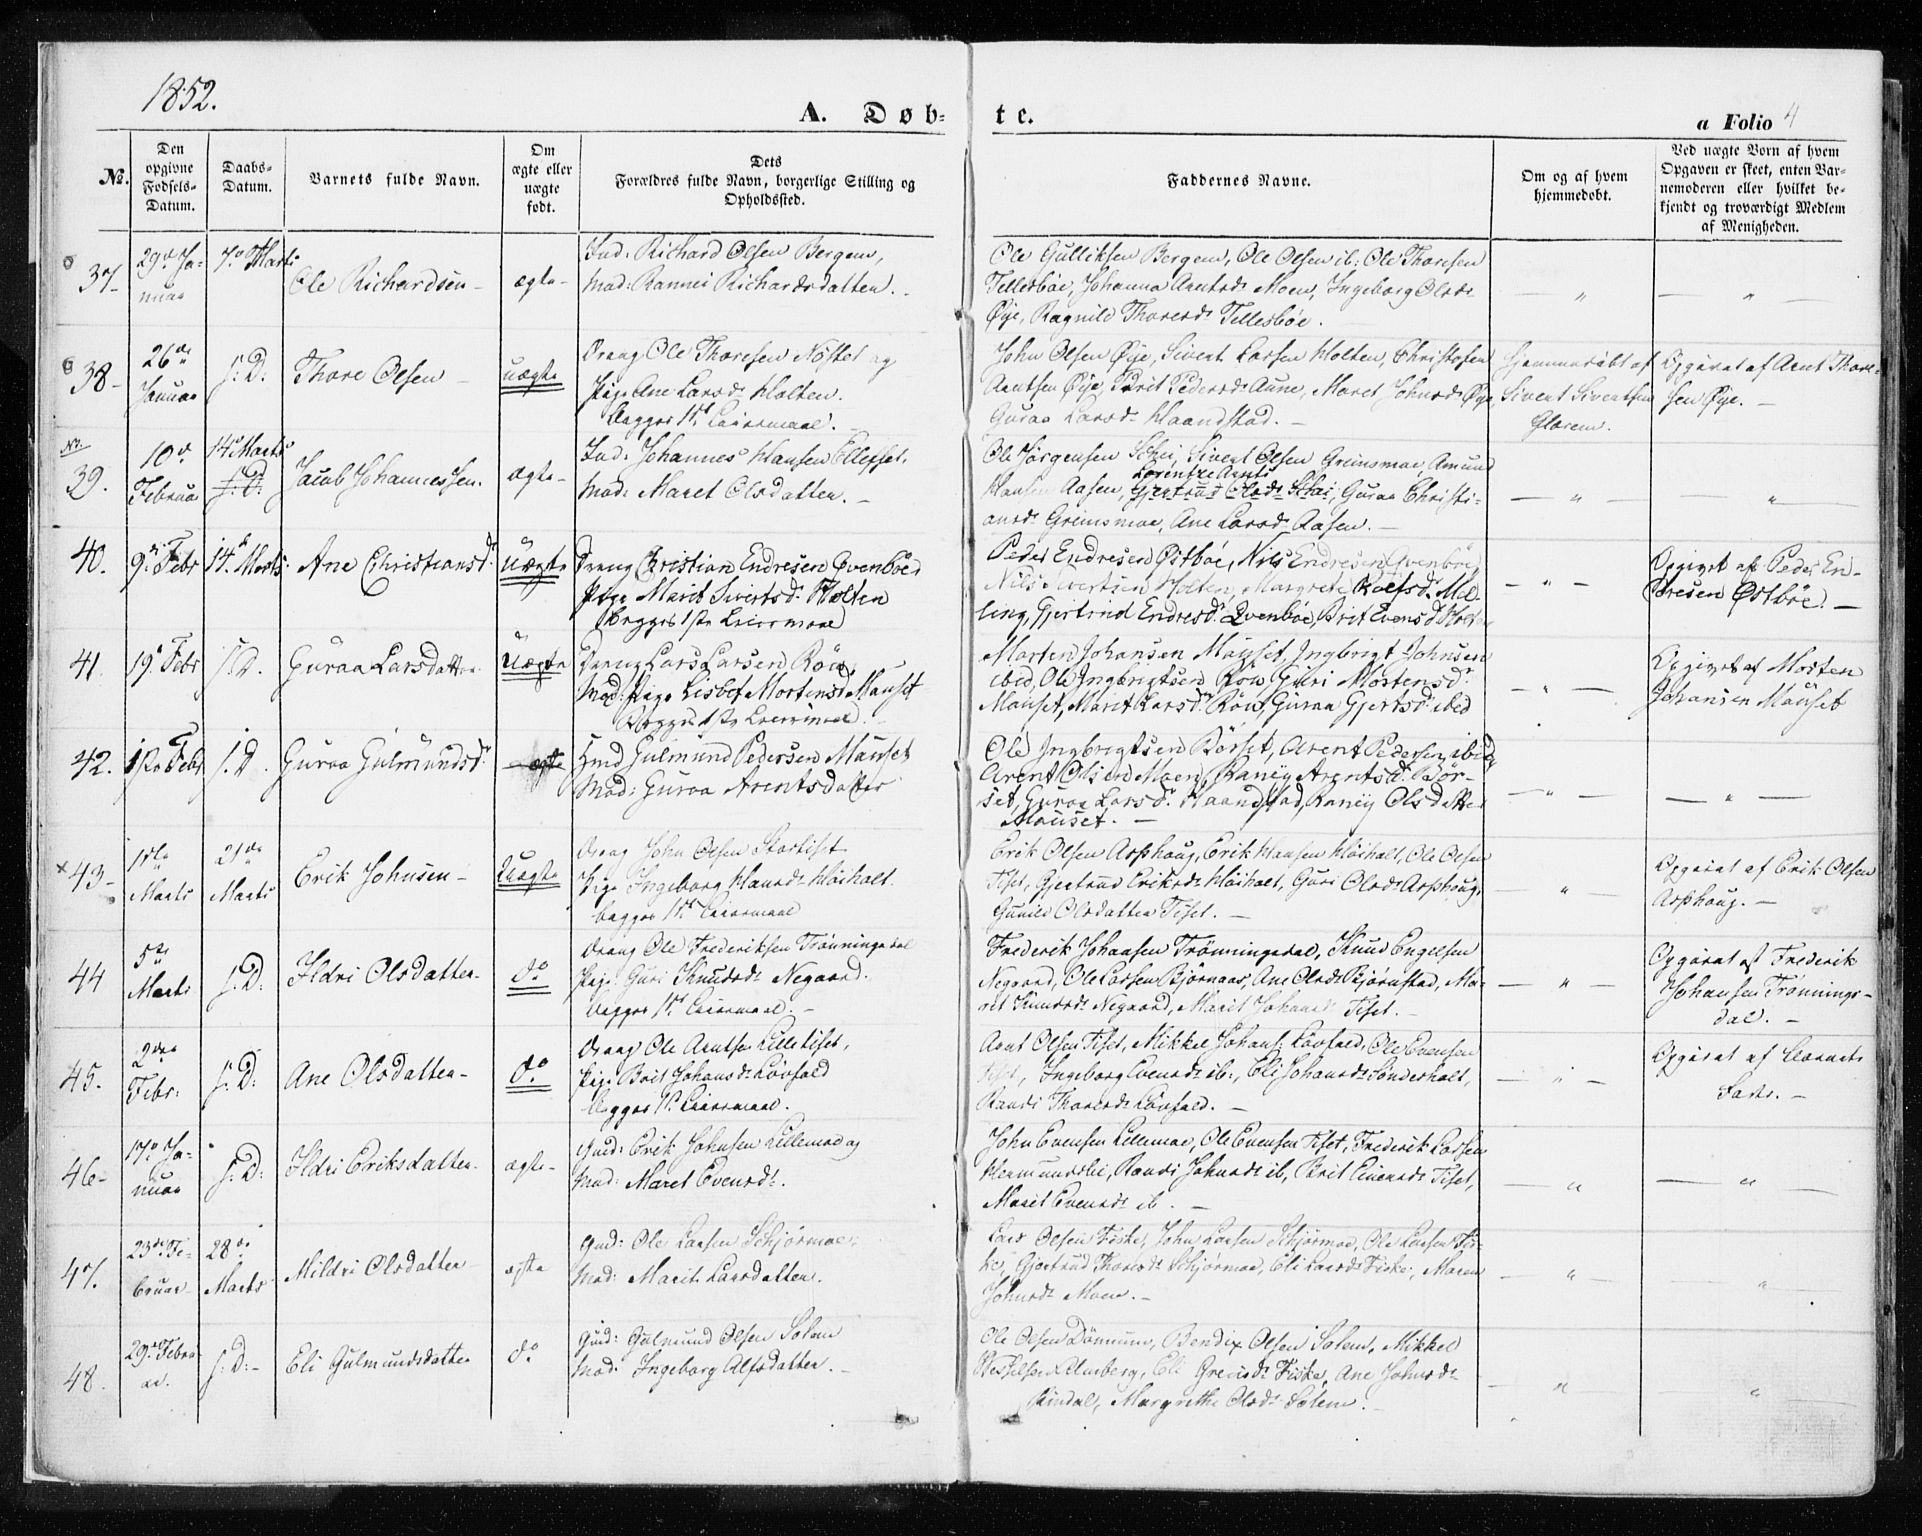 1852.
A. Døb-
te.
a Folio 4
No.
Den opgivne Fødsels-Datum.
Daabs-Datum.
Barnets fulde Navn.
Om ægte eller uægte født.
Dets Forældres fulde Navn, borgerlige Stilling og Opholdssted.
Faddernes Navne.
Om og af hvem hjemmedøbt.
Ved uægte Børn af hvem Opgaven er skeet, enten Barnemoderen eller hvilket bekjendt og troværdigt Medlem af Menigheden.
37
29de Ja-
nuar
7de Marts
Ole Richardsen
ægte
Ind: Richard Olsen Bergem,
Mod: Rannei Richardsdatter.
Ole Gulliksen Bergem, Ole Olsen ib: Ole Thoresen
Tellesbøe, Johanna Arntsdr Moen, Ingeborg Olsdr
Øye, Ragnild Thoresdr Tellesbøe.
38
26de
Januar
s: D.
Thore Olsen
uægte
Dreng Ole Thoresen Nøstet og
Pige Ane Larsdr Holten.
begges 1ste Leiermaal.
John Olsen Øye, Sivert Larsen Holten, Christofer
Arntsen Øye, Brit Pedersdr Aune, Maret Johnsdr Øye,
Guraa Larsdr Haandstad.
Hjemmedøbt af
Sivert Sivertsen
Glærem.
Opgivet af Arnt Thore-
sen Øye.
39.
10de
Februar
14de Marts
s: D:
Jacob Johannessen.
ægte
Ind: Johannes Hansen Ellefset.
Mod: Maret Olsdatter.
Ole Jørgensen Schei, Sivert Olsen Grimsmoe, Amund
Lorentze Arnts
Hansen Aasen, Gjertrud Olsdr Schei, Guraa Christi-
ansdr Grimsmoe, Ane Larsdr Aasen.
40.
9de Febr
14de Marts
Ane Christiansdr
uægte
Dreng Christian Endresen Qvenbøe
Pige Marit Sivertsdr Holten
Begges 1ste Leiermaal
Peder Endresen Østbøe, Nils Endresen Qvenbøe
Nils Sivertsen Holten, Margrete Rolfsdr Mel-
ling, Gjertrud Endresdr Qvenbøe, Brit Evensdr Holten
Opgivet af Peder En-
dresen Østbøe.
41.
19de Febr
s. D.
Guraa Larsdatter
uægte
Dreng Lars Larsen Röe
Mod: Pige Lisbet Mortensdr Mauset
Begges 1ste Leiermaal.
Morten Johansen Mauset, Ingbrigt Johnsen
ibid, Ole Ingbrigtsen Röe, Guri Mortensdr
Mauset, Marit Larsdr Röe, Guraa Gjertsdr ibid
Opgivet af Morten
Johansen Mauset
42.
Febr
s. D.
Guraa Gulmundsdr
ægte
Hmd Gulmund Pedersen Mauset
Mod: Guraa Arentsdatter
Ole Ingbrigtsen Börset, Arent Pedersen ibid,
Arent Olsen Moen, Raney Arentsdr Bör-
set, Guraa Larsdr Haandstad, Raney Olsdatter
Mauset.
43
1ste
Marts
21de
Marts
Erik Johnsen
Uægte
Dreng John Olsen Stortiset
Pige Ingeborg Hansdr Höiholt.
begges 1ste Leiermaal
Erik Olsen Asphoug, Erik Hansen Höiholt, Ole Olsen
Tiset, Gjertrud Eriksdr Höiholt, Guri Olsdr Asphoug,
Gunild Olsdatter Tiset.
Opgivet af Erik Olsen
Asphoug.
44
5te
Marts
s: D:
Ildri Olsdatter
do
Dreng Ole Frederiksen Trönningsdal
Pige: Guri Knudsdr Negaard.
begges 1ste Leiermaal.
Frederik Johansen Trönningsdal, Knud Engelsen
Negaard, Ole Larsen Björnaas, Ane Olsdr Björnstad, Ma-
ret Knudsdr Negaard, Marit Johansdr Tiset.
Opgivet af Frederik
Johansen Trönnings-
dal.
45.
2den
Febr:
s: D:
Ane Olsdatter
do
Dreng Ole Arntsen Lilletiset,
Pige Brit Johansdr Lövfald
begges 1ste Leiermaal.
Arnt Olsen Tiset, Mikkel Johans: Lövfald, Ole Evensen
Tiset, Ingeborg Evensdr ib:, Eli Johansdr Sönderholt,
Randi Thoresdr Lövfald.
Opgivet af Barnets
Fader.
46
17de Ja-
nuar
s: D:
Ildri Eriksdatter
ægte
Gmd: Erik Johnsen Lillemoe og
Mod: Maret Evensdr.
John Evensen Lillemoe, Ole Evensen Tiset, Frederik Larsen
Hermundslie, Randi Johnsdr ib, Brit Evensdr Tiset,
Marit Evensdr ib.
47.
23de Fe-
bruar
28de
Marts
Mildri Olsdatter
ægte
Gmd: Ole Larsen Schjörmoe,
Mod: Marit Larsdatter.
Lars Olsen Fiske, John Larsen Schjörmoe, Ole Larsen Fis-
ke, Gjertrud Thoresdr Schjörmoe, Eli Larsdr Fiske, Maren
Johnsdr Moen.
48.
29de Febru
ar.
s: D:
Eli Gulmundsdatter
do
Gmd: Gulmund Olsen Solem
Mod: Ingeborg Alfsdatter.
Ole Olsen Dönnum, Bendix Olsen Solem, Mikkel
Almberg, Eli Fiske, Ane Johnsdr
Margrethe Olsdr Solem.